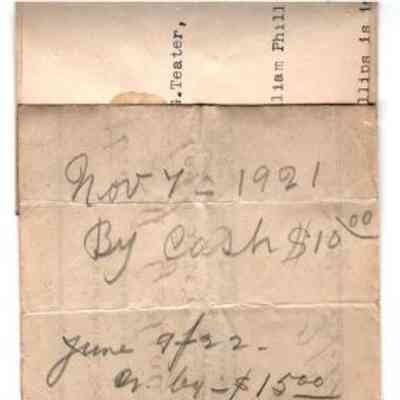 G.Teater,
lliam Phill
llips is i
Nov 7 - 1921
By Cash $10 00
June 9 - 22 -
Cr. by - $15 00